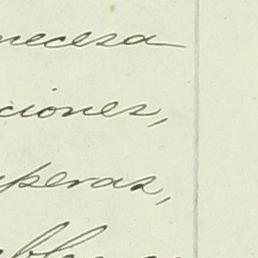 necesa
ciones,
speras,